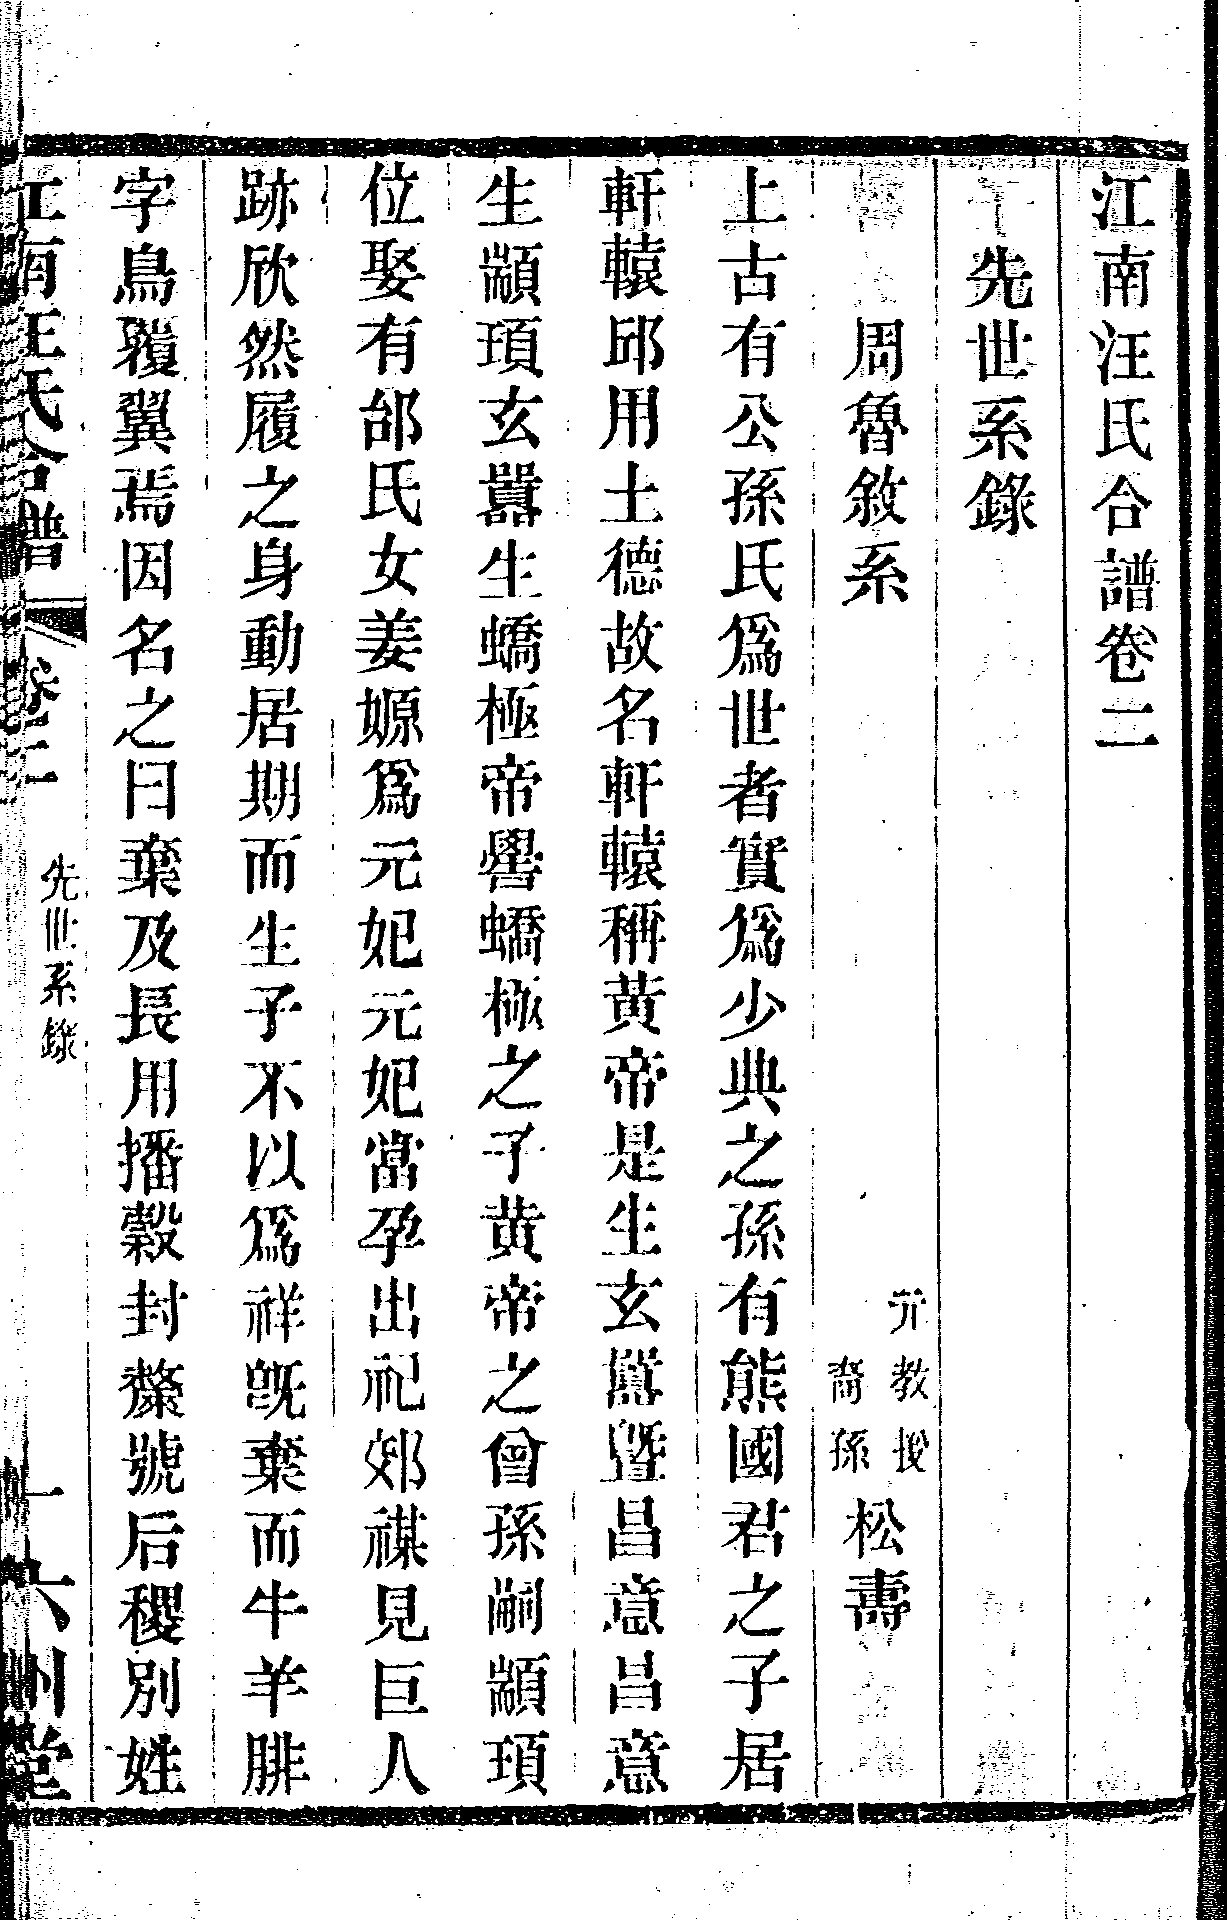 江南汪氏合譜卷二
先世系錄
周魯敘系 元教授裔孫松壽
上古有公孫氏爲世者實爲少典之孫有熊國君之子居
軒轅邱用土德故名軒轅稱黃帝是生玄囂暨昌意昌意
生顓頊玄囂生蟜極帝嚳蟜極之子黃帝之曾孫嗣顓頊
位娶有邰氏女姜嫄爲元妃元妃當孕出祀郊禖見巨人
跡欣然履之身動居期而生子不以爲祥旣棄而牛羊腓
字鳥覆翼焉因名之曰棄及長用播穀封斄號后稷別姓
江南汪氏合譜 卷二 先世系錄 一 六州堂